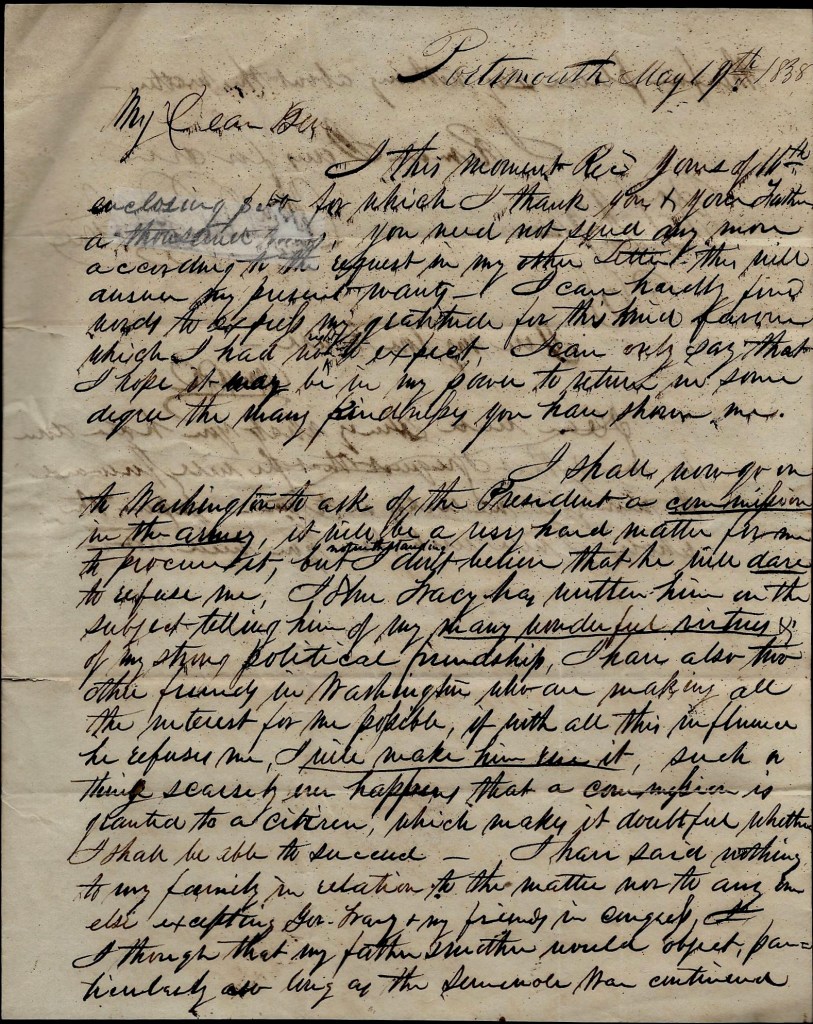 Portsmouth May 19th 1838
My Dear Geo
I this moment Recd yours of 11th
enclosing for which I thank you & your Father
a thousand times, you need not send any more
according to the request in my other Letter this will
answer my present wants — I can hardly find
words to express my gratitude for this kind favour
which I had no right to expect, I can only say that
I hope it may be in my power to return in some
degree the many kindnesses you have shown me.
I shall now go on
to Washington to ask of the President a commission
in the army, it will be a very hard matter for me
to procure it, but notwithstanding I don't believe that he will dare
to refuse me, Tracy has written him on the
subject telling him of my many wonderful virtues &
of my strong political friendship, I have also two
other friends in Washington who are making all
the interest for me possible, if with all this influence
he refuses me, I will make him rue it, such a
thing scarcely ever happens that a commission is
granted to a citizen, which makes it doubtful whether
I shall be able to succeed — I have said nothing
to my family in relation to the matter nor to any one
else excepting Gov. Tracy & my friends in congress,
I though that my father & mother would object, par=
ticularly as long as the Seminole War continued